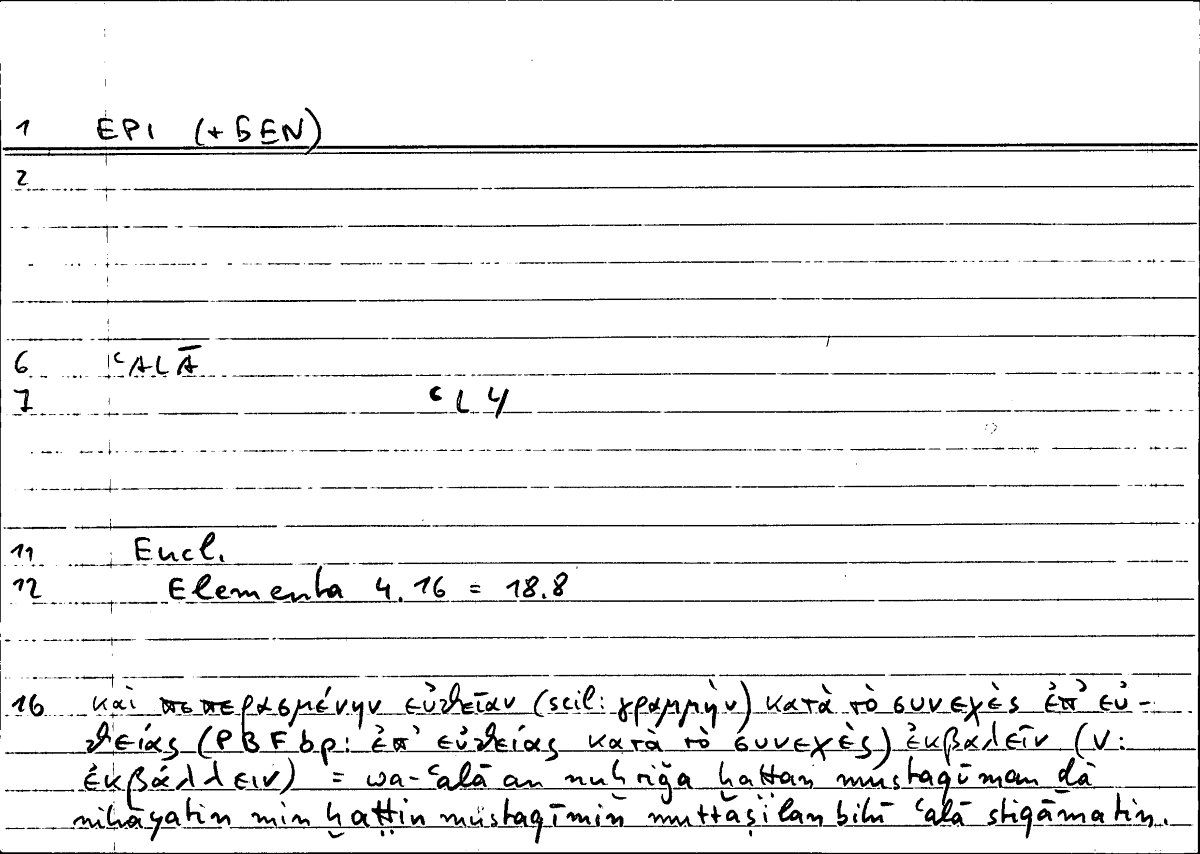 1 EPI (+ GEN)
2
6 ʿALĀ
7 ʿL Y
11 Eucl.
12 Elementa 4.16 = 18.8
16 καὶ πεπερασμένην εὐθεῖαν (scil: γραμμὴν) κατὰ τὸ συνεχὲς ἐπ' εὐ-
θείας (PBFbp: ἐπ' εὐθείας κατὰ τὸ συνεχὲς) ἐκβαλεῖν (V:
ἐκβάλλειν) = wa-ʿalā an nuḫriǧa ḫaṭṭan mustaqīman ḏā
nihāyatin min ḫaṭṭin mustaqīmin muttaṣilan bihī ʿalā stiqāmatin.